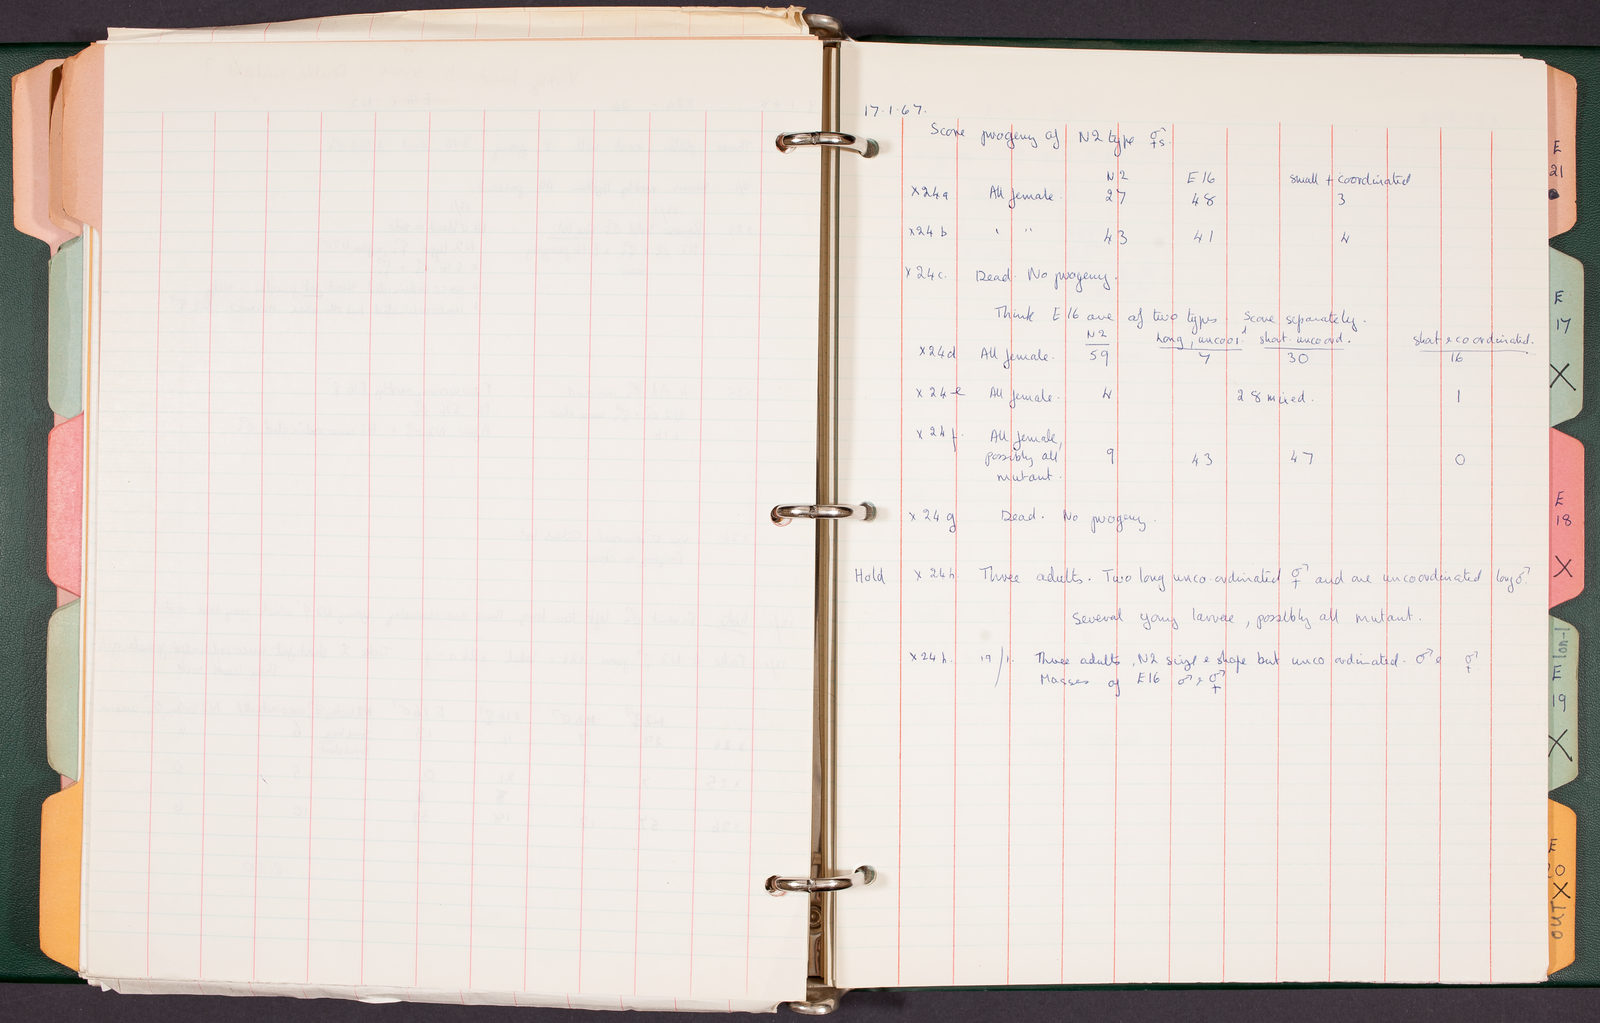 17.1.67.
Score progeny of N2 type ⚥s.
N2 E16 small + coordinated
x24a All female. 27 48 3
x24b " " 43 41 4
x24c. Dead. No progeny.
Think E16 are of two types. Score separately.
N2 Long, uncoord. short uncoord. short & coordinated.
x24d All female. 59 7 30 16
x24e All female. 4 28 mixed. 1
x24f. All female,
possibly all 9 43 47 0
mutant.
x24g Dead. No progeny.
Hold x24h Three adults. Two long unco-ordinated ⚥ and one uncoordinated long ♂.
Several young larvae, possibly all mutant.
x24h. 19/1. Three adults, N2 size & shape but unco ordinated. ♂ & ⚥
Masses of E16 ♂ & ⚥
E
21
E
17
X
E
18
X
lon-1
E
19
X
E
20
X
OUT